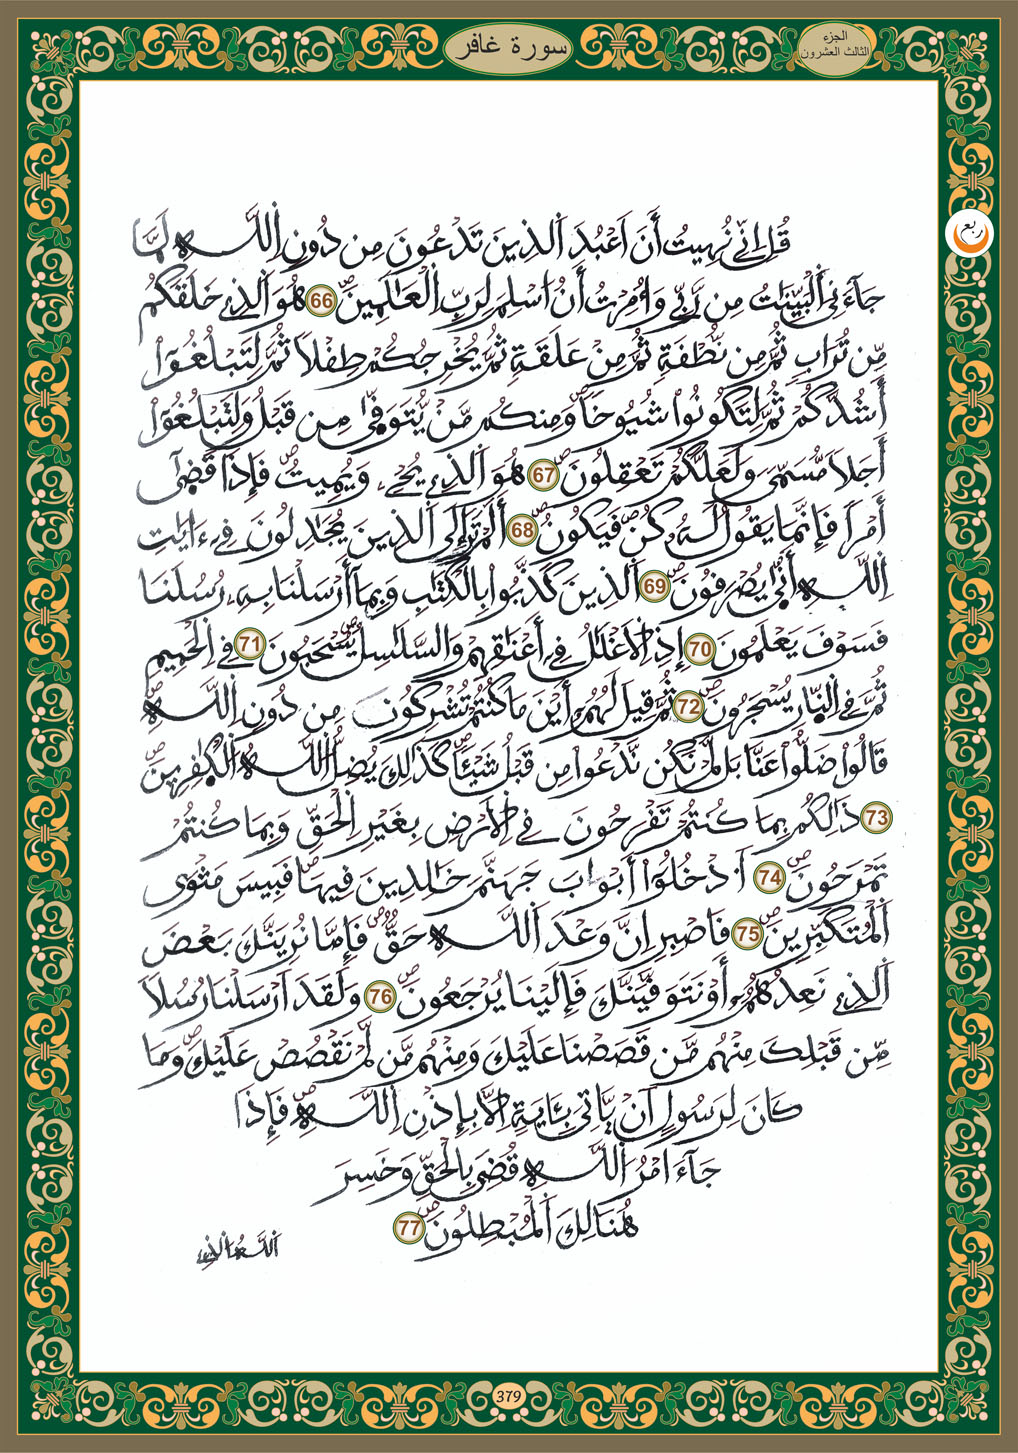 الجزء
الثالث العشرون
سورة غافر
ربع
قُلِ اِنِّي نُهِيتُ أَنَ اَعْبُدَ اَلذِينَ تَدْعُونَ مِن دُونِ اِللَّهِ لَمَّا
جَآءَنِيَ اَلْبَيِّنَٰتُ مِن رَّبِّي وَأُمِرْتُ أَنُ اسْلِمَ لِرَبِّ اِلْعَٰلَمِينَ 66 هُوَ اَلذِے خَلَقَكُم
مِّن تُرَابٍ ثُمَّ مِن نُّطْفَةٍ ثُمَّ مِنْ عَلَقَةٍ ثُمَّ يُخْرِجُكُمْ طِفْلاً ثُمَّ لِتَبْلُغُوٓاْ
أَشُدَّكُمْ ثُمَّ لِتَكُونُواْ شُيُوخاً وَمِنكُم مَّنْ يُّتَوَفّٰى مِن قَبْلُ وَلِتَبْلُغُوٓاْ
أَجَلاً مُّسَمّىً وَلَعَلَّكُمْ تَعْقِلُونَ 67 هُوَ اَلذِے يُحْيِۦ وَيُمِيتُ فَإِذَا قَضٰىٓ
أَمْراً فَإِنَّمَا يَقُولُ لَهُۥ كُن فَيَكُونُ 68 أَلَمْ تَرَ إِلَى اَلذِينَ يُجَٰدِلُونَ فِےٓ ءَايَٰتِ
اِللَّهِ أَنّٰى يُصْرَفُونَ 69 اَلذِينَ كَذَّبُواْ بِالْكِتَٰبِ وَبِمَآ أَرْسَلْنَا بِهِۦ رُسُلَنَا
فَسَوْفَ يَعْلَمُونَ 70 إِذِ اِلَاغْلَٰلُ فِےٓ أَعْنَٰقِهِمْ وَالسَّلَٰسِلُ يُسْحَبُونَ 71 فِے اِلْحَمِيمِ
ثُمَّ فِے اِلنّ۪ارِ يُسْجَرُونَ 72 ثُمَّ قِيلَ لَهُمُۥٓ أَيْنَ مَا كُنتُمْ تُشْرِكُونَ مِن دُونِ اِللَّهِ
قَالُواْ ضَلُّواْ عَنَّا بَل لَّمْ نَكُن نَّدْعُواْ مِن قَبْلُ شَيْـٔاً كَذَٰلِكَ يُضِلُّ اُللَّهُ اُلْكٰ۪فِرِينَ
73 ذَٰلِكُم بِمَا كُنتُمْ تَفْرَحُونَ فِے اِلَارْضِ بِغَيْرِ اِلْحَقِّ وَبِمَا كُنتُمْ
تَمْرَحُونَ 74 اَ۟دْخُلُوٓاْ أَبْوَٰبَ جَهَنَّمَ خَٰلِدِينَ فِيهَا فَبِيسَ مَثْوَى
اَلْمُتَكَبِّرِينَ 75 فَاصْبِرِ اِنَّ وَعْدَ اَللَّهِ حَقٌّ فَإِمَّا نُرِيَنَّكَ بَعْضَ
اَلذِے نَعِدُهُمُۥٓ أَوْ نَتَوَفَّيَنَّكَ فَإِلَيْنَا يُرْجَعُونَ 76 وَلَقَدَ اَرْسَلْنَا رُسُلاً
مِّن قَبْلِكَ مِنْهُم مَّن قَصَصْنَا عَلَيْكَ وَمِنْهُم مَّن لَّمْ نَقْصُصْ عَلَيْكَ وَمَا
كَانَ لِرَسُولٍ اَنْ يَّاتِيَ بِـَٔايَةٍ اِلَّا بِإِذْنِ اِللَّهِ فَإِذَا
جَآءَ امْرُ اُللَّهِ قُضِيَ بِالْحَقِّ وَخَسِرَ
هُنَالِكَ اَلْمُبْطِلُونَ 77
اَللَّهُ اُلذِے
379